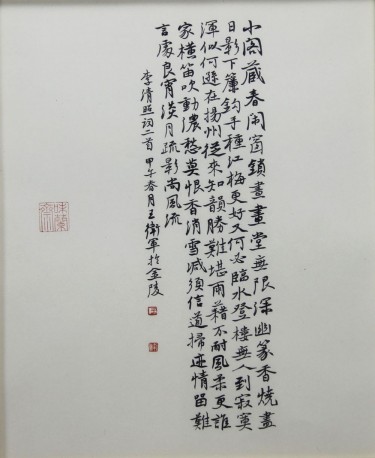 小閣藏春閑窗鎖晝畫堂無限深幽篆香燒盡
日影下簾鈎手種江梅更好又何必臨水登樓無人到寂寞
渾似何遜在揚州從來知韻勝難堪雨藉不耐風柔更誰
家橫笛吹動濃愁莫恨香消雪減須信道掃迹情留難
言處良宵淡月疏影尚風流
李清照詞二首 甲午春月王衛軍於金陵